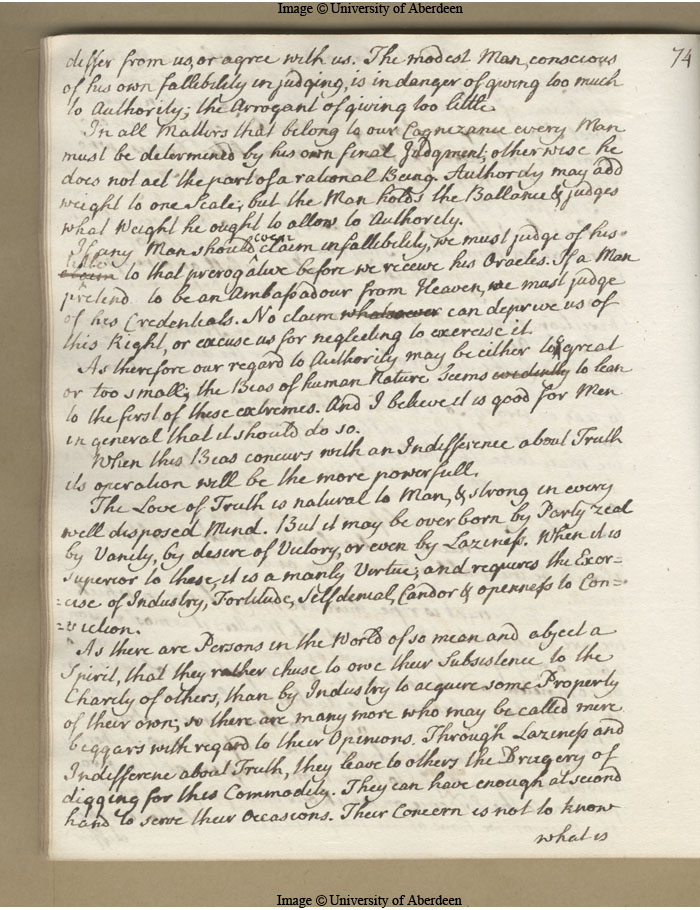 Image © University of Aberdeen
74
differ from us, or agree with us. The modest Man, conscious
of his own fallibility in judging, is in danger of giving too much
to Authority; the Arrogant of giving too little.
In all Matters that belong to our Cognizance every Man
must be determined by his own final Judgment; otherwise he
does not act the part of a rational Being. Authority may add
weight to one Scale; but the Man holds the Ballance & judges
what Weight he ought to allow to Authority.
If any Man should even claim infallibility, we must judge of his
title claim to that prerogative before we receive his Oracles. If a Man
pretend to be an Ambassadour from Heaven, we must judge
of his Credentials. No claim whatsoever can deprive us of
this Right, or excuse us for neglecting to exercise it.
As therefore our regard to Authority may be either too great
or too small; the Bias of human Nature seems evidently to lean
to the first of these extremes. And I believe it is good for Men
in general that it should do so.
When this Bias concurs with an Indifference about Truth
its operation will be the more powerfull.
The Love of Truth is natural to Man, & strong in every
well disposed Mind. But it may be over born by Party zeal
by Vanity, by desire of Victory, or even by Laziness. When it is
superior to these, it is a manly Virtue, and requires the Exer=
=cise of Industry, Fortitude, Self denial, Candor & openness to Con=
=viction.
As there are Persons in the World of so mean and abject a
Spirit, that they rather chuse to owe their Subsistence to the
Charity of others, than by Industry to acquire some Property
of their own; so there are many more who may be called mere
beggars with regard to their Opinions. Through Laziness and
Indifference about Truth, they leave to others the Drugery of
digging for this Commodity. They can have enough at second
hand to serve their Occasions. Their Concern is not to know
what is
Image © University of Aberdeen